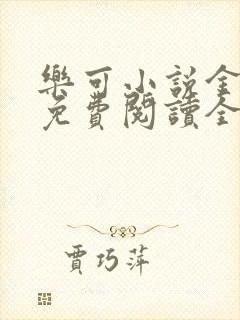 樂可小說全
免費閱讀全
賈巧萍